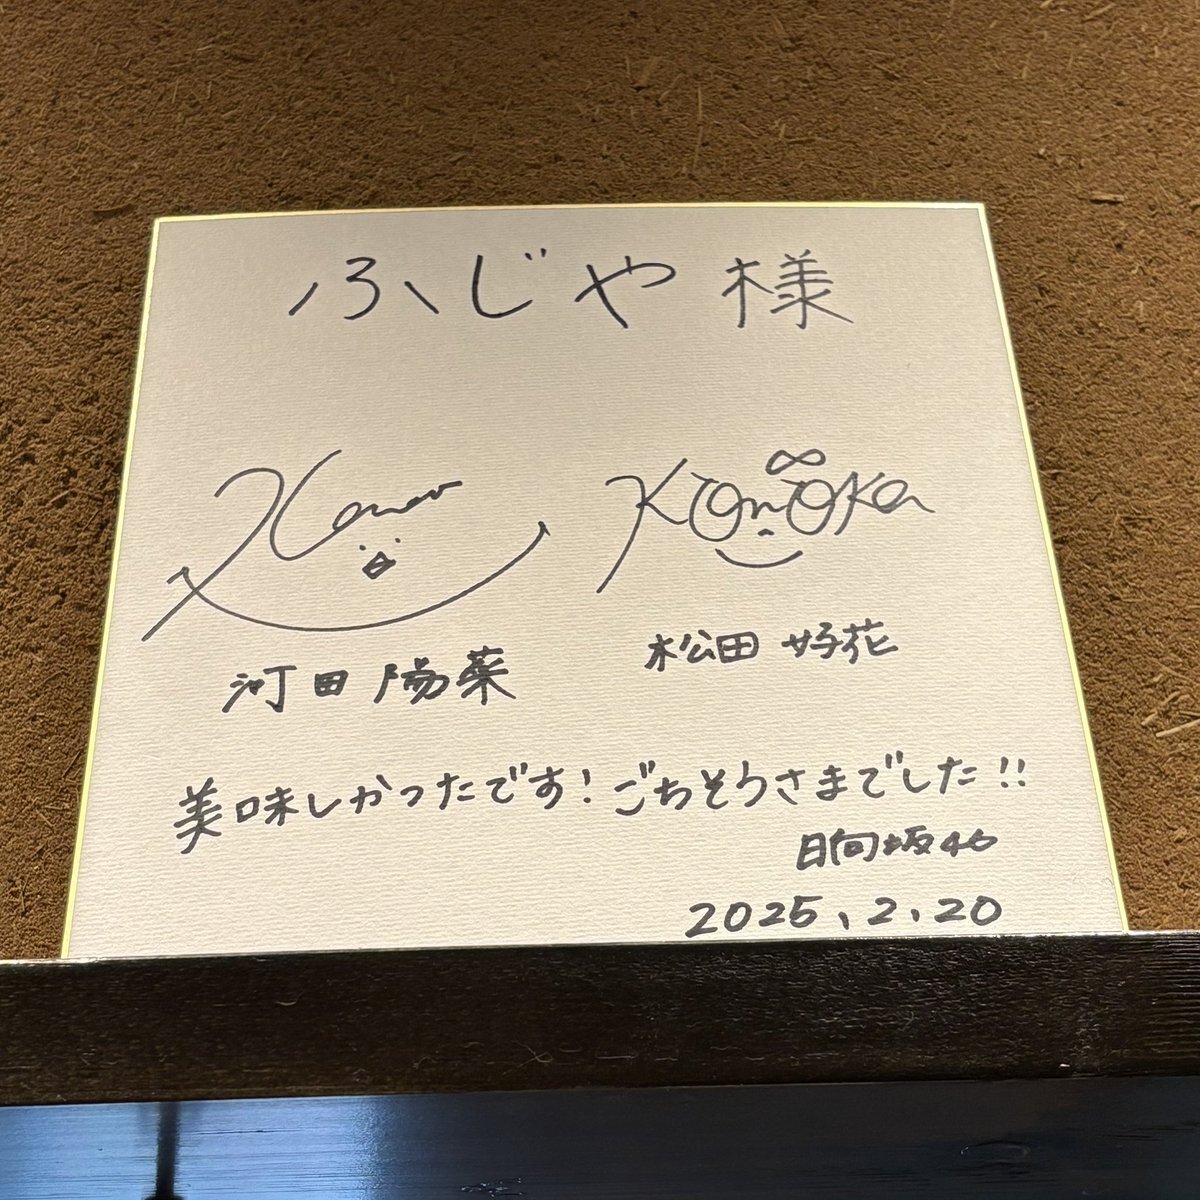 ふじや様
Konoka
河田陽菜
松田好花
美味しかったです!ごちそうさまでした!!
日向坂46
2025.2.20